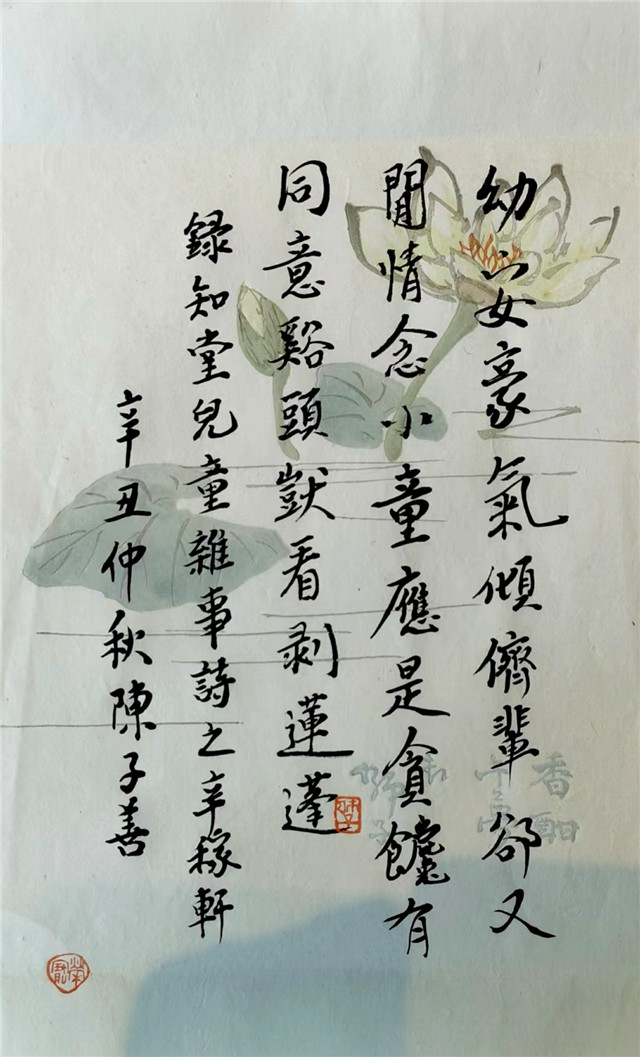 幼安豪氣傾儕輩卻又
閒情念小童應是貪饞有
同意谿頭獃看剥蓮蓬
録知堂兒童雜事詩之辛稼軒
辛丑仲秋陳子善